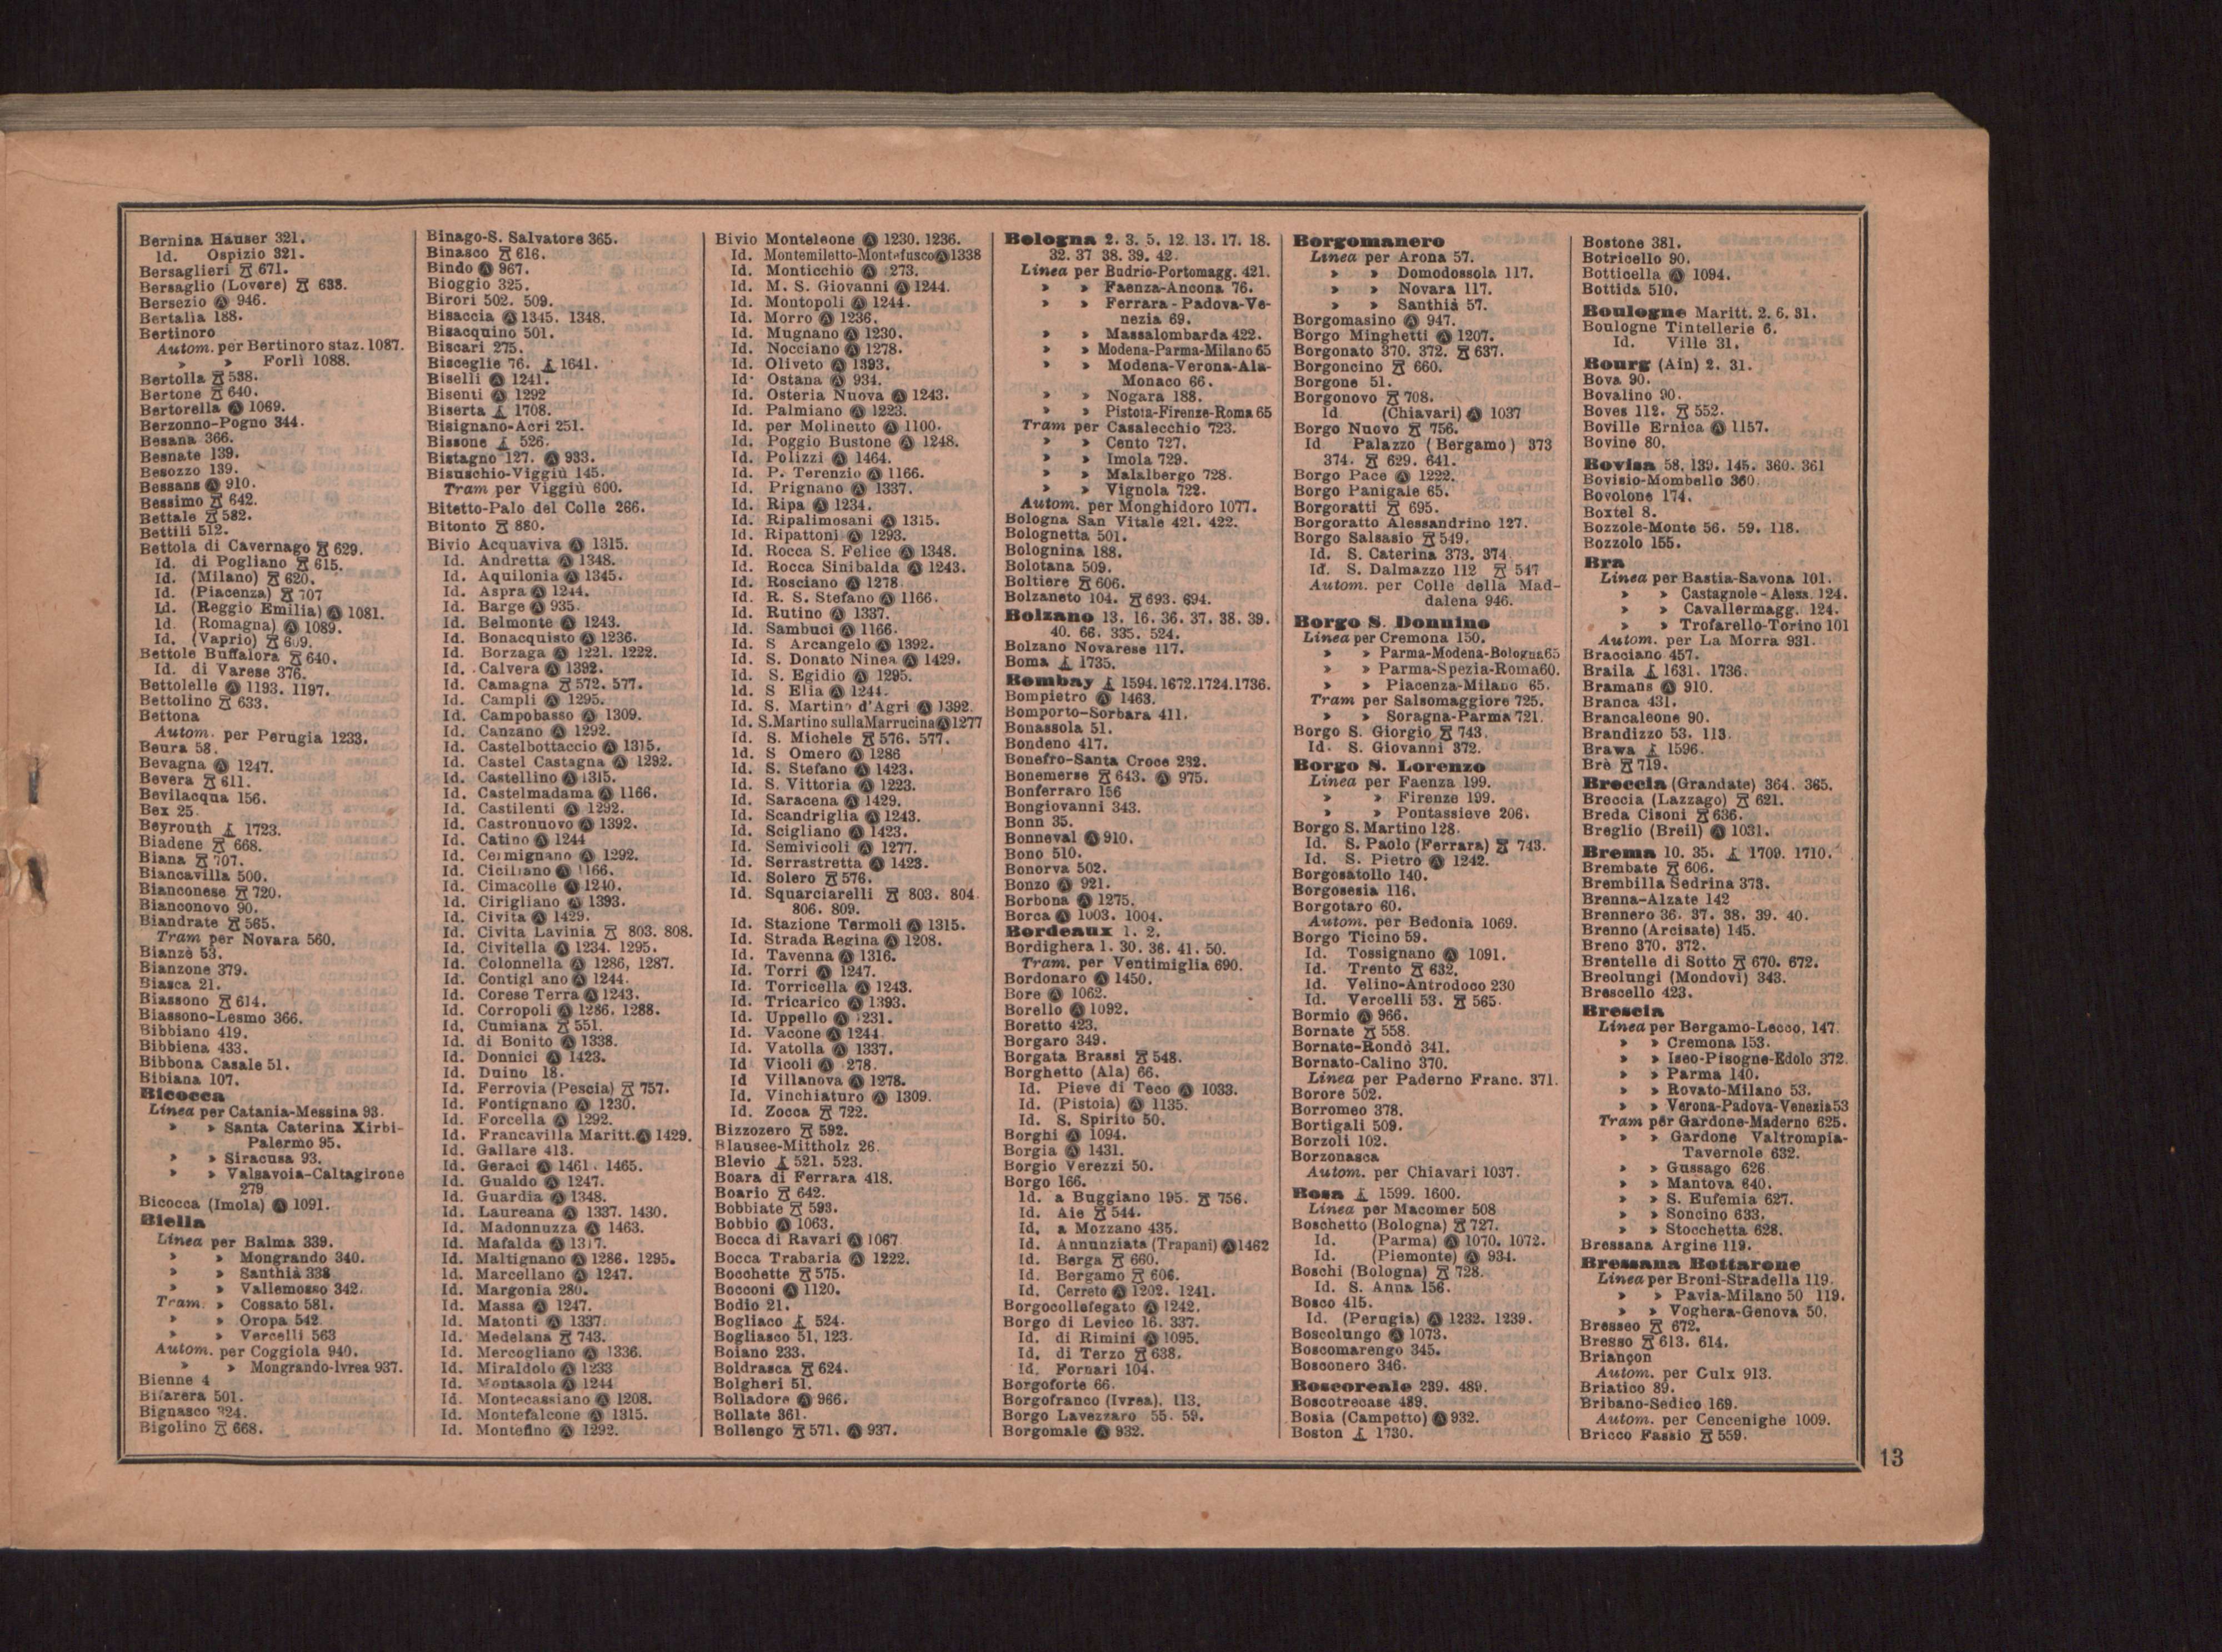 Bernina Häuser 321.
Id. Ospizio 321.
Bersaglieri 671.
Bersaglio (Lovere) 638.
Bersezio Ⓐ 946.
Bertalia 188.
Bertinoro
Autom. per Bertinoro staz. 1087.
» » Forlì 1088.
Bertolla 538.
Bertone 640.
Bertorella Ⓐ 1069.
Berzonno-Pogno 344.
Besana 366.
Besnate 139.
Besozzo 139.
Bessans Ⓐ 910.
Bessimo 642.
Bettale 582.
Bettili 512.
Bettola di Cavernago 629.
Id. di Pogliano 615.
Id. (Milano) 620.
Id. (Piacenza) 707
Id. (Reggio Emilia) Ⓐ 1081.
Id. (Romagna) Ⓐ 1089.
Id. (Vaprio)
Bettole Buffalora 640.
Id. di Varese 376.
Bettolelle Ⓐ 1193. 1197.
Bettolino 633.
Bettona
Autom. per Perugia 1233.
Beura 58.
Bevagna Ⓐ 1247.
Bevera 611.
Bevilacqua 156.
Bex 25.
Beyrouth 1723.
Biadene 668.
Biana 707.
Biancavilla 500.
Bianconese 720.
Bianconovo 90.
Biandrate 565.
Tram per Novara 560.
Bianzè 53.
Bianzone 379.
Biasca 21.
Biassono 614.
Biassono-Lesmo 366.
Bibbiano 419.
Bibbiena 433.
Bibbona Casale 51.
Bibiana 107.
Bicocca
Linea per Catania-Messina 93.
» » Santa Caterina Xirbi-
Palermo 95.
» » Siracusa 93.
» » Valsavoia-Caltagirone
279
Bicocca (Imola) Ⓐ 1091.
Biella
Linea per Balma 339.
» » Mongrando 340.
» » Santhià 338
» » Vallemosso 342.
Tram. » Cossato 581.
» » Oropa 542
» » Vercelli 563
Autom. per Coggiola 940.
» » Mongrando-Ivrea 937.
Bienne 4
Bifarera 501.
Bignasco 324.
Bigolino 668.
Binago-S. Salvatore 365.
Binasco 616.
Bindo Ⓐ 967.
Bioggio 325.
Birori 502. 509.
Bisaccia Ⓐ 1345. 1348.
Bisacquino 501.
Biscari 275.
Bisceglie 76. 1641.
Biselli Ⓐ 1241.
Bisenti Ⓐ 1292
Biserta 1708.
Bisignano-Acri 251.
Bissone 526.
Bistagno 127. Ⓐ 933.
Bisuschio-Viggiù 145.
Tram per Viggiù 600.
Bitetto-Palo del Colle 266.
Bitonto 880.
Bivio Acquaviva Ⓐ 1315.
Id. Andretta Ⓐ 1348.
Id. Aquilonia Ⓐ 1345.
Id. Aspra Ⓐ 1244.
Id. Barge Ⓐ 935.
Id. Belmonte Ⓐ 1243.
Id. Bonacquisto Ⓐ 1236.
Id. Borzaga Ⓐ 1221. 1222.
Id. Calvera Ⓐ 1392.
Id. Camagna 572. 577.
Id. Campli Ⓐ 1295.
Id. Campobasso Ⓐ 1309.
Id. Canzano Ⓐ 1292.
Id. Castelbottaccio Ⓐ 1315.
Id. Castel Castagna Ⓐ 1292.
Id. Castellino Ⓐ 1315.
Id. Castelmadama Ⓐ 1166.
Id. Castilenti Ⓐ 1292.
Id. Castronuovo Ⓐ 1392.
Id. Catino Ⓐ 1244
Id. Cermignano Ⓐ 1292.
Id. Ciciliano Ⓐ 1166.
Id. Cimacolle Ⓐ 1240.
Id. Cirigliano Ⓐ 1393.
Id. Civita Ⓐ 1429.
Id. Civita Lavinia 803. 808.
Id. Civitella Ⓐ 1234. 1295.
Id. Colonnella Ⓐ 1286, 1287.
Id. Contigliano Ⓐ 1244.
Id. Corese Terra Ⓐ 1243.
Id. Corropoli Ⓐ 1286. 1288.
Id. Cumiana 551.
Id. di Bonito Ⓐ 1338.
Id. Donnici Ⓐ 1423.
Id. Duino 18.
Id. Ferrovia (Pescia) 757.
Id. Fontignano Ⓐ 1230.
Id. Forcella Ⓐ 1292.
Id. Francavilla Maritt. Ⓐ 1429.
Id. Gallare 413.
Id. Geraci Ⓐ 1461. 1465.
Id. Gualdo Ⓐ 1247.
Id. Guardia Ⓐ 1348.
Id. Laureana Ⓐ 1337. 1430.
Id. Madonnuzza Ⓐ 1463.
Id. Mafalda Ⓐ 1317.
Id. Maltignano Ⓐ 1286. 1295.
Id. Marcellano Ⓐ 1247.
Id. Margonia 280.
Id. Massa Ⓐ 1247.
Id. Matonti Ⓐ 1337.
Id. Medelana 743.
Id. Mercogliano Ⓐ 1336.
Id. Miraldolo Ⓐ 1233
Id. Montasola Ⓐ 1244
Id. Montecassiano Ⓐ 1208.
Id. Montefalcone Ⓐ 1315.
Id. Montefino Ⓐ 1292.
Bivio Monteleone Ⓐ 1230. 1236.
Id. Montemiletto-Montefusco Ⓐ 1338
Id. Monticchio Ⓐ 273.
Id. M. S. Giovanni Ⓐ 1244.
Id. Montopoli Ⓐ 1244.
Id. Morro Ⓐ 1236.
Id. Mugnano Ⓐ 1230.
Id. Nocciano Ⓐ 1278.
Id. Oliveto Ⓐ 1393.
Id. Ostana Ⓐ 934.
Id. Osteria Nuova Ⓐ 1243.
Id. Palmiano Ⓐ 1223.
Id. per Molinetto Ⓐ 1100.
Id. Poggio Bustone Ⓐ 1248.
Id. Polizzi Ⓐ 1464.
Id. P. Terenzio Ⓐ 1166.
Id. Prignano Ⓐ 1337.
Id. Ripa Ⓐ 1234.
Id. Ripalimosani Ⓐ 1315.
Id. Ripattoni Ⓐ 1293.
Id. Rocca S. Felice Ⓐ 1348.
Id. Rocca Sinibalda Ⓐ 1243.
Id. Rosciano Ⓐ 1278
Id. R. S. Stefano Ⓐ 1166.
Id. Rutino Ⓐ 1337.
Id. Sambuci Ⓐ 1166.
Id. S Arcangelo Ⓐ 1392.
Id. S. Donato Ninea Ⓐ 1429.
Id. S. Egidio Ⓐ 1295.
Id. S Elia Ⓐ 1244.
Id. S. Martino d'Agri Ⓐ 1392.
Id. S. Martino sulla Marrucina Ⓐ 1277
Id. S. Michele 576. 577.
Id. S Omero Ⓐ 1286
Id. S. Stefano Ⓐ 1423.
Id. S. Vittoria Ⓐ 1223.
Id. Saracena Ⓐ 1429.
Id. Scandriglia Ⓐ 1243.
Id. Scigliano Ⓐ 1423.
Id. Semivicoli Ⓐ 1277.
Id. Serrastretta Ⓐ 1423.
Id. Solero 576.
Id. Squarciarelli 803. 804.
806. 809.
Id. Stazione Termoli Ⓐ 1315.
Id. Strada Regina Ⓐ 1208.
Id. Tavenna Ⓐ 1316.
Id. Torri Ⓐ 1247.
Id. Torricella Ⓐ 1243.
Id. Tricarico Ⓐ 1393.
Id. Uppello Ⓐ 231.
Id. Vacone Ⓐ 1244.
Id. Vatolla Ⓐ 1337.
Id Vicoli Ⓐ 278.
Id Villanova Ⓐ 1278.
Id. Vinchiaturo Ⓐ 1309.
Id. Zocca 722.
Bizzozero 592.
Blausee-Mittholz 26.
Blevio 521. 523.
Boara di Ferrara 418.
Boario 642.
Bobbiate 593.
Bobbio Ⓐ 1063.
Bocca di Ravari Ⓐ 1067
Bocca Trabaria Ⓐ 1222.
Bocchette 575.
Bocconi Ⓐ 1120.
Bodio 21.
Bogliaco 524.
Bogliasco 51, 123.
Boiano 233.
Boldrasca 624.
Bolgheri 51.
Bolladore Ⓐ 966.
Bollate 361.
Bollengo 571. Ⓐ 937.
Bologna 2. 3. 5. 12. 13. 17. 18.
32. 37 38. 39. 42.
Linea per Budrio-Portomagg. 421.
» » Faenza-Ancona 76.
» » Ferrara - Padova-Ve-
nezia 69.
» » Massalombarda 422.
» » Modena-Parma-Milano 65
» » Modena-Verona-Ala-
Monaco 66.
» » Nogara 188.
» » Pistoia-Firenze-Roma 65
Tram per Casalecchio 723.
» » Cento 727.
» » Imola 729.
» » Malalbergo 728.
» » Vignola 722.
Autom. per Monghidoro 1077.
Bologna San Vitale 421. 422.
Bolognetta 501.
Bolognina 188.
Bolotana 509.
Boltiere 606.
Bolzaneto 104. 693. 694.
Bolzano 13. 16. 36. 37. 38. 39.
40. 66. 335. 524.
Bolzano Novarese 117.
Boma 1735.
Bombay 1594. 1672. 1724. 1736.
Bompietro Ⓐ 1463.
Bomporto-Sorbara 411.
Bonassola 51.
Bondeno 417.
Bonefro-Santa Croce 232.
Bonemerse 643. Ⓐ 975.
Bonferraro 156
Bongiovanni 343.
Bonn 35.
Bonneval Ⓐ 910.
Bono 510.
Bonorva 502.
Bonzo Ⓐ 921.
Borbona Ⓐ 1275.
Borca Ⓐ 1003. 1004.
Bordeaux 1. 2.
Bordighera 1. 30. 36. 41. 50.
Tram. per Ventimiglia 690.
Bordonaro Ⓐ 1450.
Bore Ⓐ 1062.
Borello Ⓐ 1092.
Boretto 423.
Borgaro 349.
Borgata Brassi 548.
Borghetto (Ala) 66.
Id. Pieve di Teco Ⓐ 1033.
Id. (Pistoia) Ⓐ 1135.
Id. S. Spirito 50.
Borghi Ⓐ 1094.
Borgia Ⓐ 1431.
Borgio Verezzi 50.
Borgo 166.
Id. a Buggiano 195. 756.
Id. Aie 544.
Id. a Mozzano 435.
Id. Annunziata (Trapani) Ⓐ 1462
Id. Berga 660.
Id. Bergamo 606.
Id. Cerreto Ⓐ 1202. 1241.
Borgocollefegato Ⓐ 1242.
Borgo di Levico 16. 337.
Id. di Rimini Ⓐ 1095.
Id. di Terzo 638.
Id. Fornari 104.
Borgoforte 66.
Borgofranco (Ivrea). 113.
Borgo Lavezzaro 55. 59.
Borgomale Ⓐ 932.
Borgomanero
Linea per Arona 57.
» » Domodossola 117.
» » Novara 117.
» » Santhià 57.
Borgomasino Ⓐ 947.
Borgo Minghetti Ⓐ 1207.
Borgonato 370. 372. 637.
Borgoncino 660.
Borgone 51.
Borgonovo 708.
Id (Chiavari) Ⓐ 1037
Borgo Nuovo 756.
Id Palazzo (Bergamo) 373
374. 629. 641.
Borgo Pace Ⓐ 1222.
Borgo Panigale 65.
Borgoratti 695.
Borgoratto Alessandrino 127.
Borgo Salsasio 549.
Id. S. Caterina 373. 374
Id. S. Dalmazzo 112 547
Autom. per Colle della Mad-
dalena 946.
Borgo S. Donnino
Linea per Cremona 150.
» » Parma-Modena-Bologna 65
» » Parma-Spezia-Roma 60.
» » Piacenza-Milano 65.
Tram per Salsomaggiore 725.
» » Soragna-Parma 721.
Borgo S. Giorgio 743.
Id. S. Giovanni 372.
Borgo S. Lorenzo
Linea per Faenza 199.
» » Firenze 199.
» » Pontassieve 206.
Borgo S. Martino 128.
Id. S. Paolo (Ferrara) 743.
Id. S. Pietro Ⓐ 1242.
Borgosatollo 140.
Borgosesia 116.
Borgotaro 60.
Autom. per Bedonia 1069.
Borgo Ticino 59.
Id. Tossignano Ⓐ 1091.
Id. Trento 632.
Id. Velino-Antrodoco 230
Id. Vercelli 53. 565.
Bormio Ⓐ 966.
Bornate 558.
Bornate-Rondò 341.
Bornato-Calino 370.
Linea per Paderno Franc. 371.
Borore 502.
Borromeo 378.
Bortigali 509.
Borzoli 102.
Borzonasca
Autom. per Chiavari 1037.
Bosa 1599. 1600.
Linea per Macomer 508
Boschetto (Bologna) 727.
Id. (Parma) Ⓐ 1070. 1072.
Id. (Piemonte) Ⓐ 934.
Boschi (Bologna) 728.
Id. S. Anna 156.
Bosco 415.
Id. (Perugia) Ⓐ 1232. 1239.
Boscolungo Ⓐ 1073.
Boscomarengo 345.
Bosconero 346.
Boscoreale 239. 489.
Boscotrecase 489.
Bosia (Campetto) Ⓐ 932.
Boston 1730.
Bostone 381.
Botricello 90.
Botticella Ⓐ 1094.
Bottida 510.
Boulogne Maritt. 2. 6. 31.
Boulogne Tintellerie 6.
Id. Ville 31.
Bourg (Ain) 2. 31.
Bova 90.
Bovalino 90.
Boves 112. 552.
Boville Ernica Ⓐ 1157.
Bovino 80.
Bovisa 58. 139. 145. 360. 361
Bovisio-Mombello 360.
Bovolone 174.
Boxtel 8.
Bozzole-Monte 56. 59. 118.
Bozzolo 155.
Bra
Linea per Bastia-Savona 101.
» » Castagnole-Aless. 124.
» » Cavallermagg. 124.
» » Trofarello-Torino 101
Autom. per La Morra 931.
Bracciano 457.
Braila 1631. 1736.
Bramans Ⓐ 910.
Branca 431.
Brancaleone 90.
Brandizzo 53. 113.
Brawa 1596.
Brè 719.
Breccia (Grandate) 364. 365.
Breccia (Lazzago) 621.
Breda Cisoni 636.
Breglio (Breil) Ⓐ 1031.
Brema 10. 35. 1709. 1710.
Brembate 606.
Brembilla Sedrina 373.
Brenna-Alzate 142
Brennero 36. 37. 38. 39. 40.
Brenno (Arcisate) 145.
Breno 370. 372.
Brentelle di Sotto 670. 672.
Breolungi (Mondovì) 343.
Brescello 423.
Brescia
Linea per Bergamo-Lecco. 147.
» » Cremona 153.
» » Iseo-Pisogne-Edolo 372.
» » Parma 140.
» » Rovato-Milano 53.
» » Verona-Padova-Venezia 53
Tram per Gardone-Maderno 625.
» » Gardone Valtrompia-
Tavernole 632.
» » Gussago 626
» » Mantova 640.
» » S. Eufemia 627.
» » Soncino 633.
» » Stocchetta 628.
Bressana Argine 119.
Bressana Bottarone
Linea per Broni-Stradella 119.
» » Pavia-Milano 50 119.
» » Voghera-Genova 50.
Bresseo 672.
Bresso 613. 614.
Briançon
Autom. per Culx 913.
Briatico 89.
Bribano-Sedico 169.
Autom. per Cencenighe 1009.
Bricco Fassio 559.
13